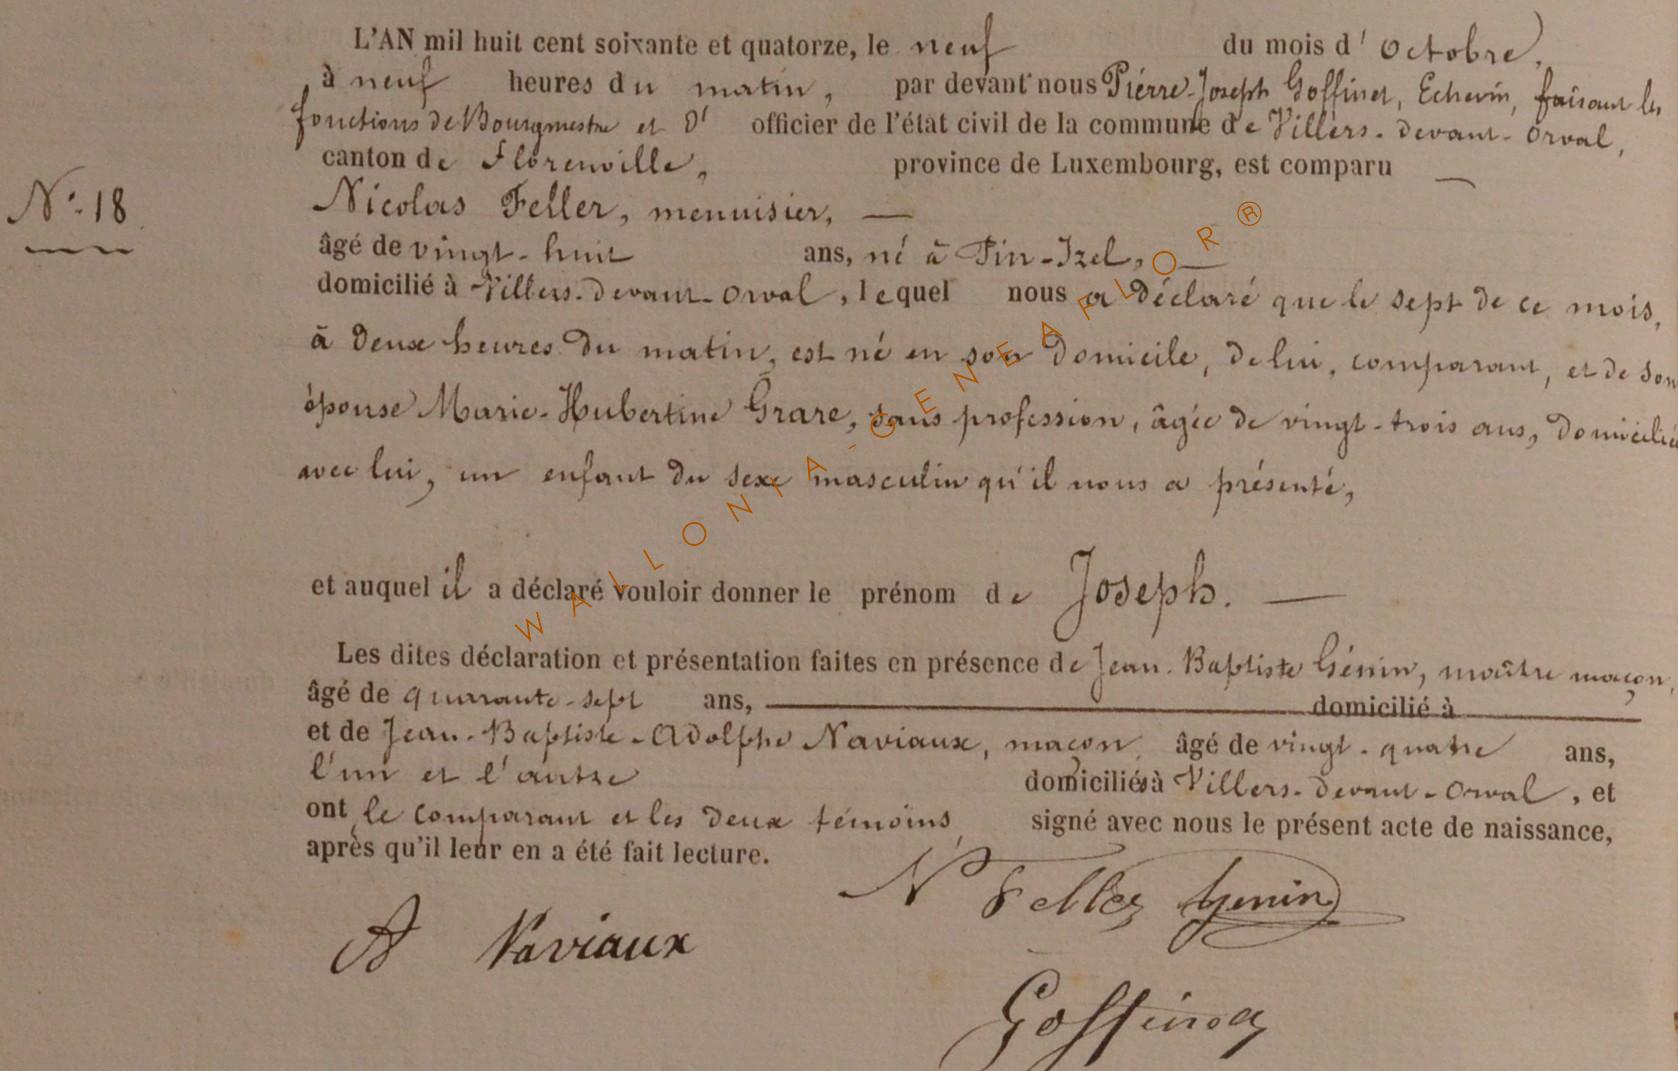 L'AN mil huit cent soixante et quatorze, le neuf du mois d'octobre,
à neuf heures du matin, par devant nous Piérre-Joseph Goffinet, Echevin, faisant les
fonctions de Bourgmestre et d' officier de l'état civil de la commune de Villers-devant-Orval,
canton de Florenville, province de Luxembourg, est comparu —
N°. 18
Nicolas Feller, menuisier, —
âgé de vingt-huit ans, né à Pin-Izel, —
domicilié à Villers-devant-Orval, lequel nous a déclaré que le sept de ce mois,
à deux heures du matin, est né en son domicile, de lui, comparant, et de son
épouse Marie-Hubertine Grare, sans profession, âgée de vingt-trois ans, domiciliée
avec lui, un enfant du sexe masculin qu'il nous a présenté,
et auquel il a déclaré vouloir donner le prénom de Joseph. —
Les dites déclaration et présentation faites en présence de Jean-Baptiste Génin, maître maçon,
âgé de quarante-sept ans, domicilié à
et de Jean-Baptiste-Adolphe Naviaux, maçon, âgé de vingt-quatre ans,
l'un et l'autre domiciliés à Villers-devant-Orval, et
ont, le comparant et les deux témoins, signé avec nous le présent acte de naissance,
après qu'il leur en a été fait lecture.
N Feller Genin
A Naviaux
Goffinet
WALLONIA-GENEAFLOR®